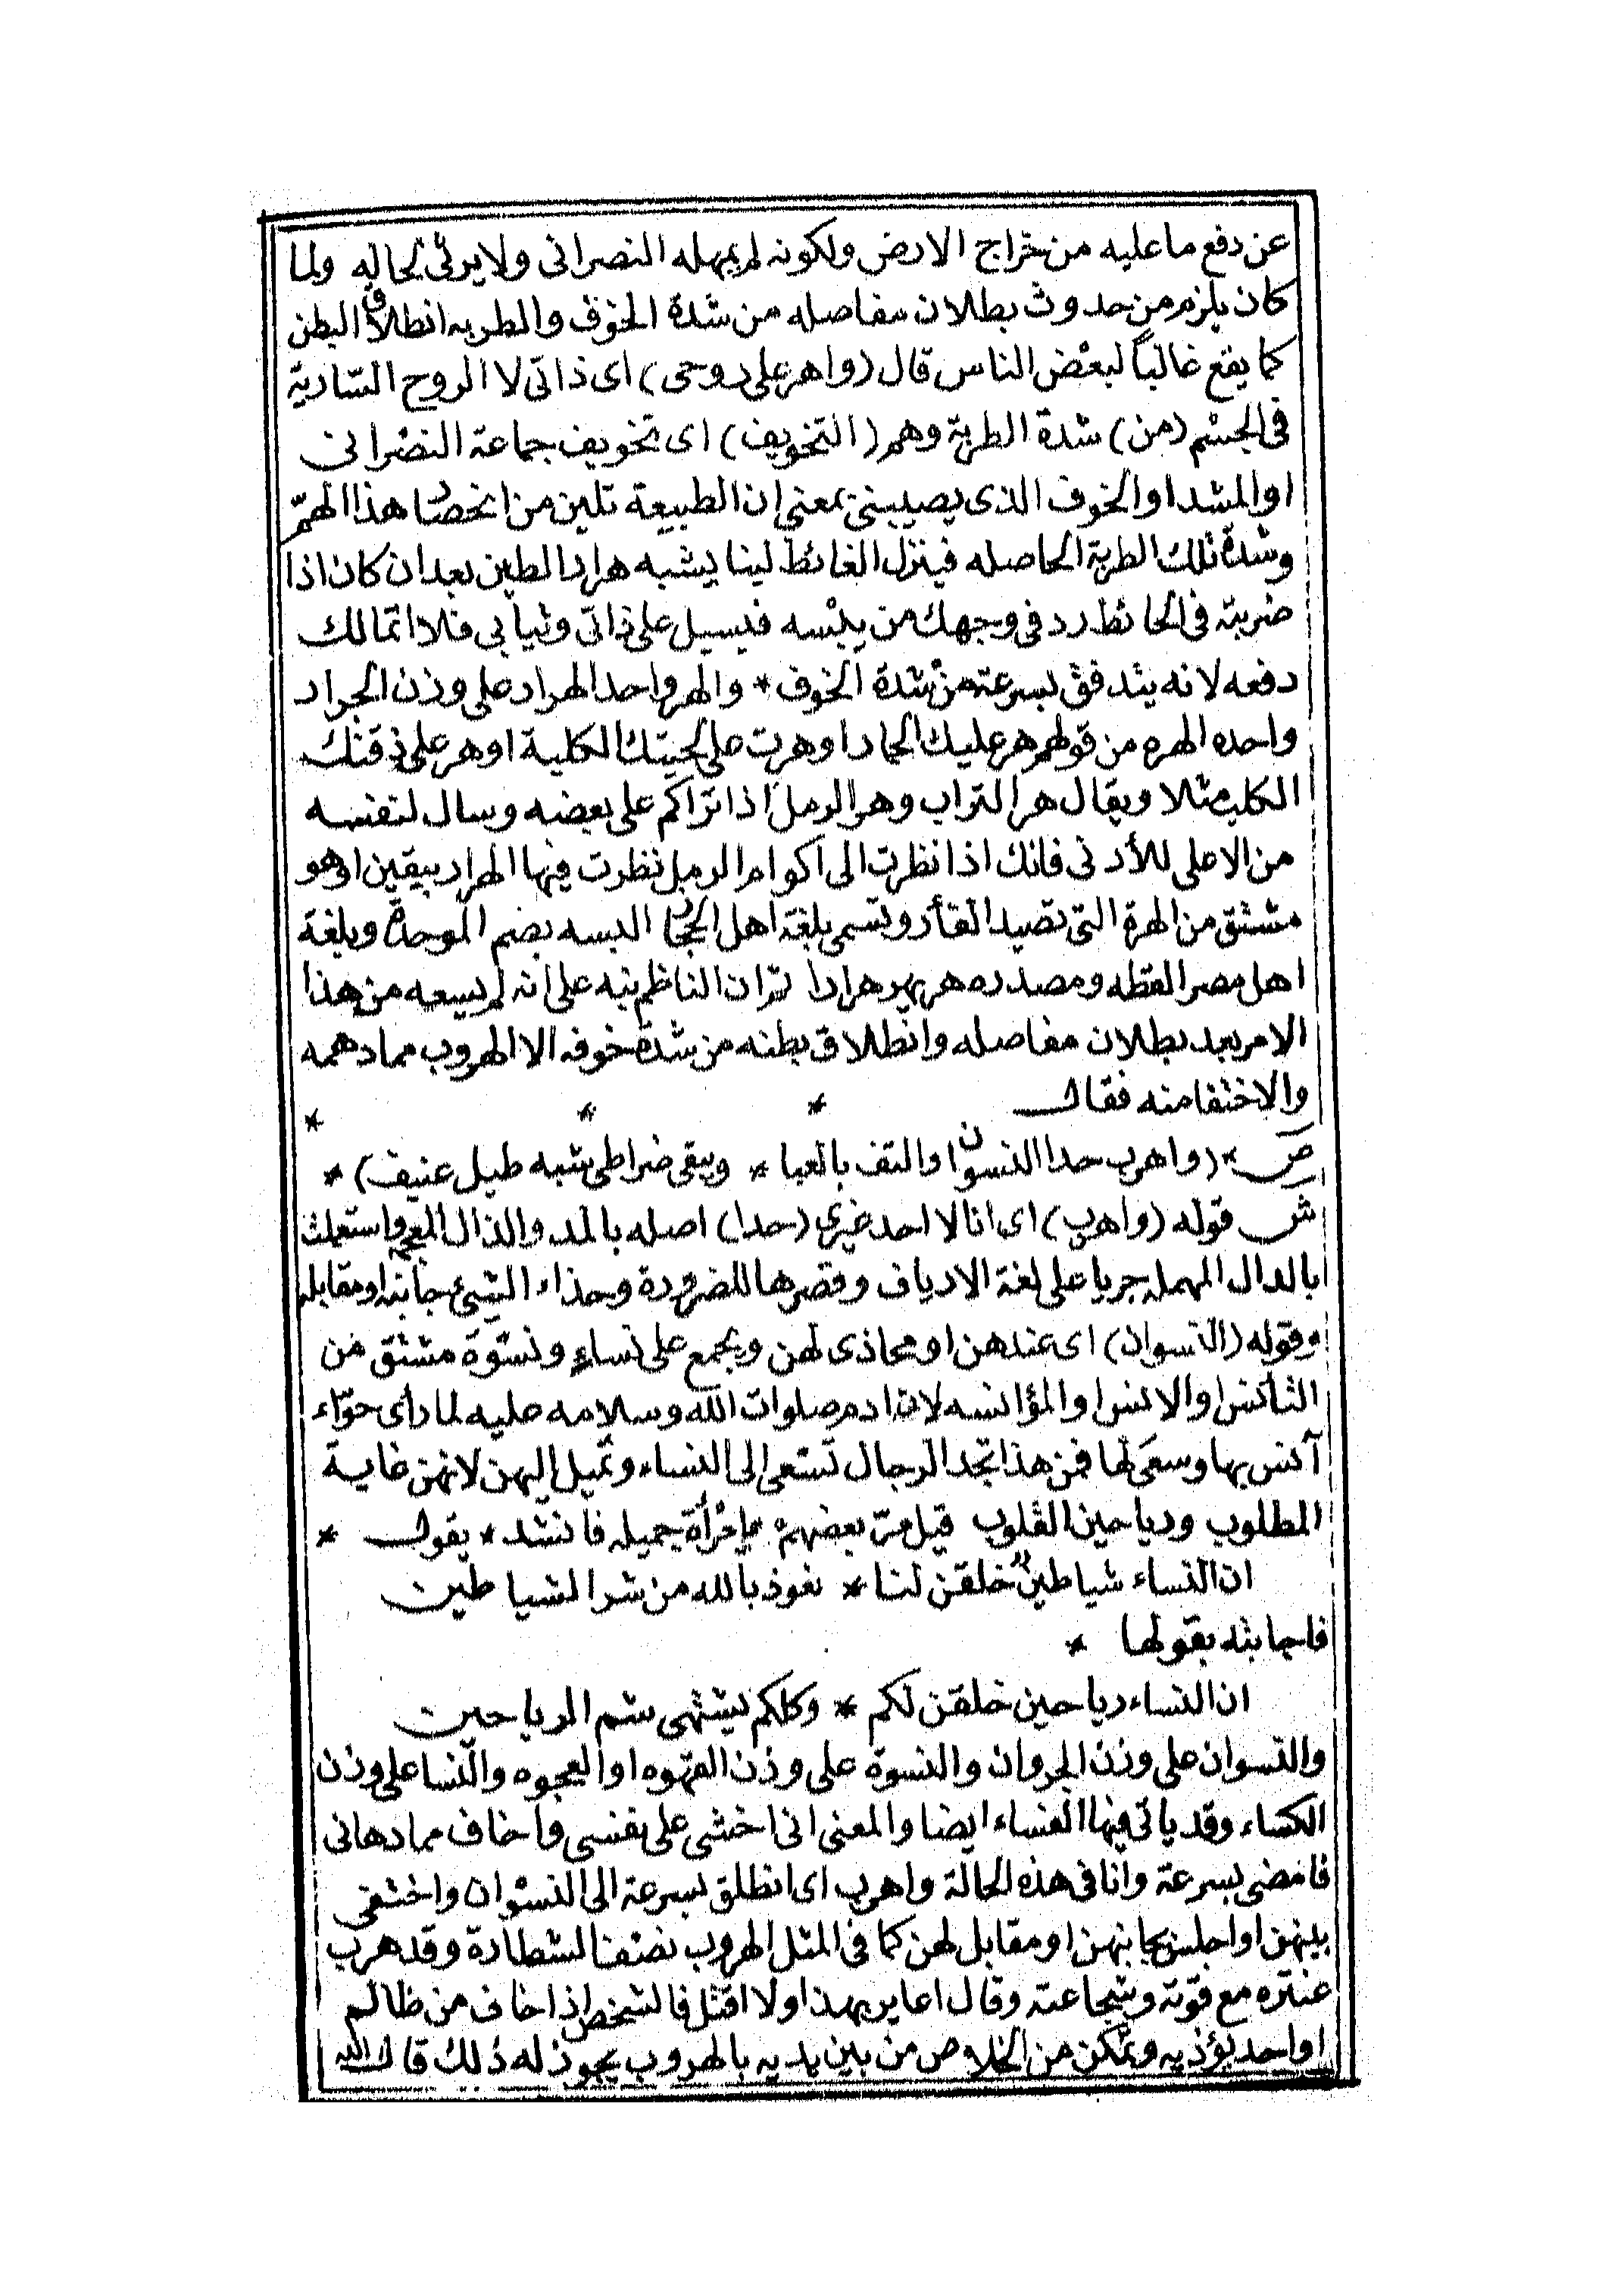 عن دفع ما عليه من خراج الارض ولكونه لم يمهله النصرانى ولا يرثى لحاله ولما
كان يلزم من حدوث بطلان مفاصله من شدة الخوف والطربه انطلاق البطن
كما يقع غالباً لبعض الناس قال (واهر على روحى) اى ذاتى لا الروح السّارية
فى الجسْم (من) شدة الطربة وهم (التخويف) اى تخويف جماعة النصْرانى
او المشد او الخوف الذى يصيبنى بمعنى ان الطبيعة تلين من انحصار هذا الهمّ
وشدة تلك الطربة الحاصله فينزل الغائط لينا يشبه هرار الطين بعد ان كان اذا
ضربته فى الحائط رد فى وجهك من يبْسه فيسيل على ذاتى وثيابى فلا اتمالك
دفعه لانه يتدفق بسرعة من شدة الخوف * والهر واحد الهرار على وزن الجرار
واحده الهره من قولهم هر عليك الحمار او هرت على لحيتك الكلبة او هر على ذقنك
الكلب مثلا ويقال هر التراب وهر الرمل اذا تراكم على بعضه وسال لنفسه
من الاعلى للأدنى فانك اذا نظرت الى اكوام الرمل نظرت فيها الهرار بيقين او هو
مشتق من الهرة التى تصيد الفأر وتسمى بلغة اهل الحجاز البسه بضم الموحدة وبلغة
اهل مصر القطه ومصدره هر يهر هرارا ثم ان الناظم نبه على انه لم يسعه من هذا
الامر بعد بطلان مفاصله وانطلاق بطنه من شدة خوفه الا الهروب مما دهمه
والاختفا منه فقال * * *
ص * (واهرب حدا النسوان والتف بالعبا * ويبقى ضراطى شبه طبل عنيف) *
ش قوله (واهرب) اى انا لا احد غيرى (حدا) اصله بالمد والذال المعجمه واستعملت
بالدال المهمله جريا على لغة الارياف وقصرها للضرورة وحذاء الشيئ جانبه او مقابله
وقوله (النسوان) اى عندهن او محاذى لهن ويجمع على نساءٍ ونسْوَة مشتق من
التأنس او الانس او المؤانسه لان ادم صلوات الله وسلامه عليه لما رأى حوّاء
آنس بها وسعَى لها فمن هذا تجد الرجال تسْعى الى النساء وتميل اليهن لانهن غاية
المطلوب ورياحين القلوب قيل مرّ بعضهم بامْرأة جميله فانشد * يقول *
ان النساء شياطينٌ خلقن لنا * نعوذ بالله من شر الشياطين
فاجابته بقولها *
ان النساء رياحين خلقن لكم * وكلكم يشتهى شم الرياحين
والنسوان على وزن الجروان والنسوة على وزن القهوه او العجوه والنّسا على وزن
الكساء وقد ياتى فيها الفساء ايضا والمعنى انى اخشى على نفسى واخاف مما دهانى
فامضى بسرعة وانا فى هذه الحالة واهرب اى انطلق بسرعة الى النسْوان واختفى
بينهن او اجلس بجانبهن او مقابل لهن كما فى المثل الهروب نصْف الشطارة وقد هرب
عنتره مع قوته وشجاعته وقال اعاير بهذا ولا اقتل فالشخص اذا خاف من ظالم
او احد يؤذيه وتمكن من الخلاص من بين يديه بالهروب يجوز له ذلك قال الله